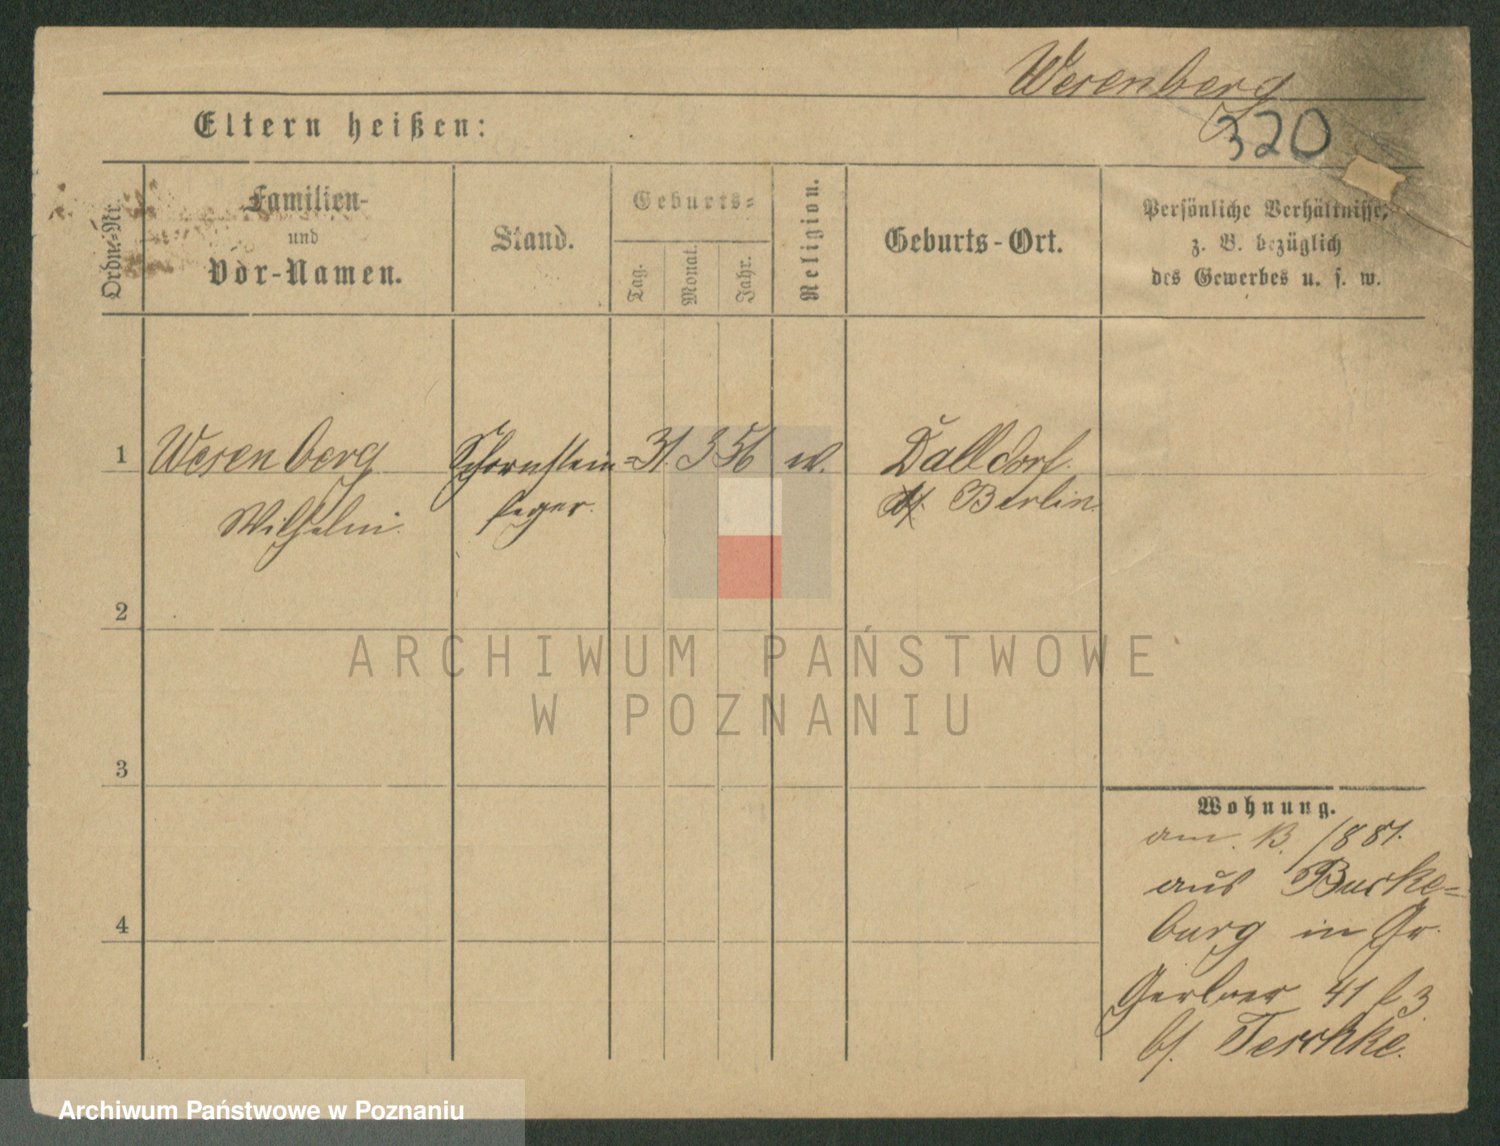 Wesenberg
Eltern heißen:
320
Ordn.-Nr.
Familien-
und
Vor-Namen.
Stand.
Geburts-
Tag.
Monat.
Jahr.
Religion.
Geburts-Ort.
Persönliche Verhältnisse,
z. B. bezüglich
des Gewerbes u. s. w.
1
Wesenberg
Wilhelm.
Schornstein=
feger.
31. 3 56
ev.
Dalldorf.
Berlin.
2
ARCHIWUM PAŃSTWOWE
W POZNANIU
3
Wohnung.
am 1881.
aus Bücke=
burg in Gr.
Gerber 41
bei
4
Archiwum Państwowe w Poznaniu